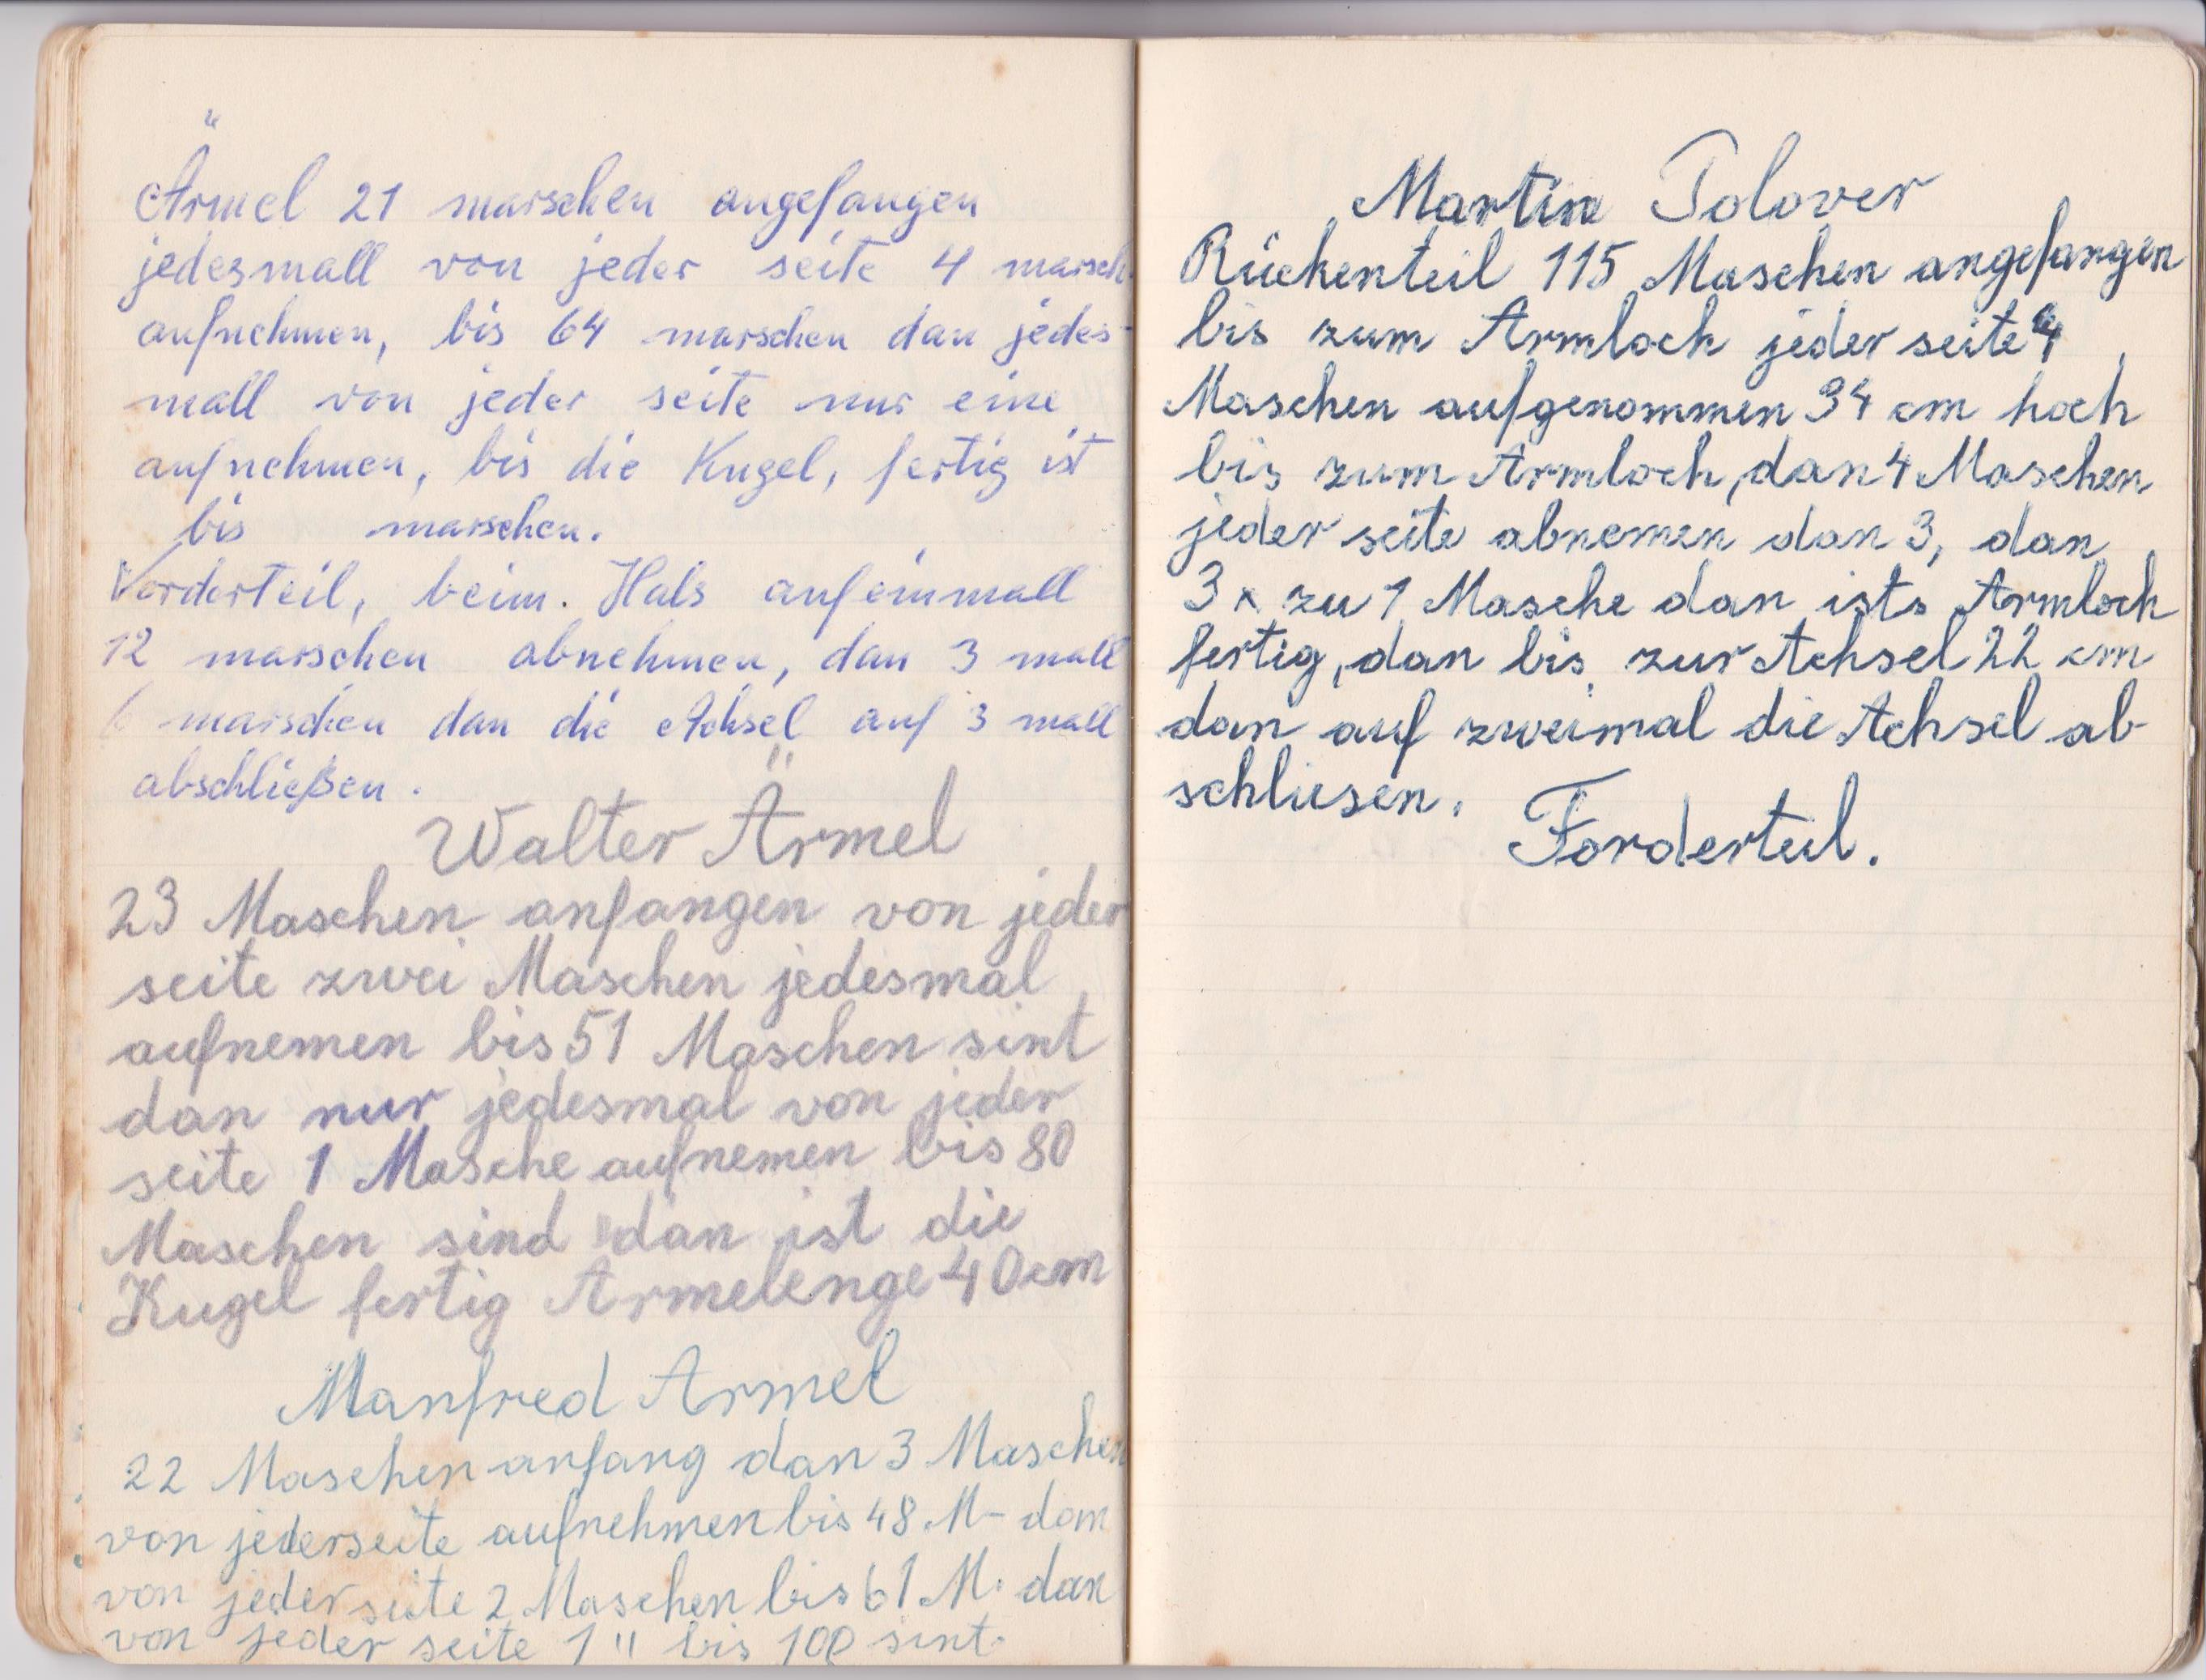 Ärmel 21 marschen angefangen
jedesmall von jeder seite 4 marsch
aufnehmen, bis 64 marschen dan jedes-
mall von jeder seite nur eine
aufnehmen, bis die Kugel, fertig ist
bis marschen.
Vorderteil, beim. Hals aufeinmall
12 marschen abnehmen, dan 3 mall
6 marschen dan die Achsel auf 3 mall
abschließen.
Walter Ärmel
23 Maschen anfangen von jeder
seite zwei Maschen jedesmal
aufnemen bis 51 Maschen sint
dan nur jedesmal von jeder
seite 1 Masche aufnemen bis 80
Maschen sind dan ist die
Kugel fertig Armelenge 40cm
Manfred Armel
22 Maschen anfang dan 3 Maschen
von jederseite aufnehmen bis 48 M- dan
von jeder seite 2 Maschen bis 61 M. dan
von jeder seite 1 " bis 100 sint.
Martin Polover
Rückenteil 115 Maschen angefangen
bis zum Armloch jeder seite 4
Maschen aufgenommen 34 cm hoch
bis zum Armloch, dan 4 Maschen
jeder seite abnemen dan 3, dan
3 x zu 1 Masche dan ists Armloch
fertig, dan bis zur Achsel 22 cm
dan auf zweimal die Achsel ab-
schliesen.
Forderteil.